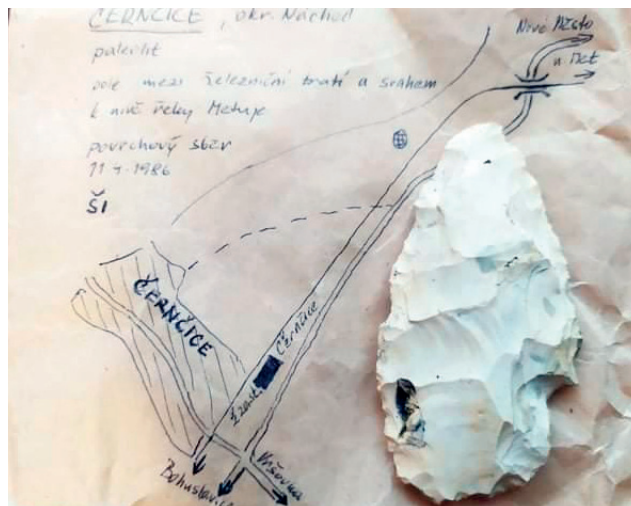 ČERNČICE, okr. Náchod
paleolit
pole mezi železniční tratí a svahem
k nivě řeky Metuje
povrchový sběr
11.4.1986
ŠI
Nové Město
n. Met
ČERNČICE
Žzast. Černčice
Bohuslavice
Vršovka